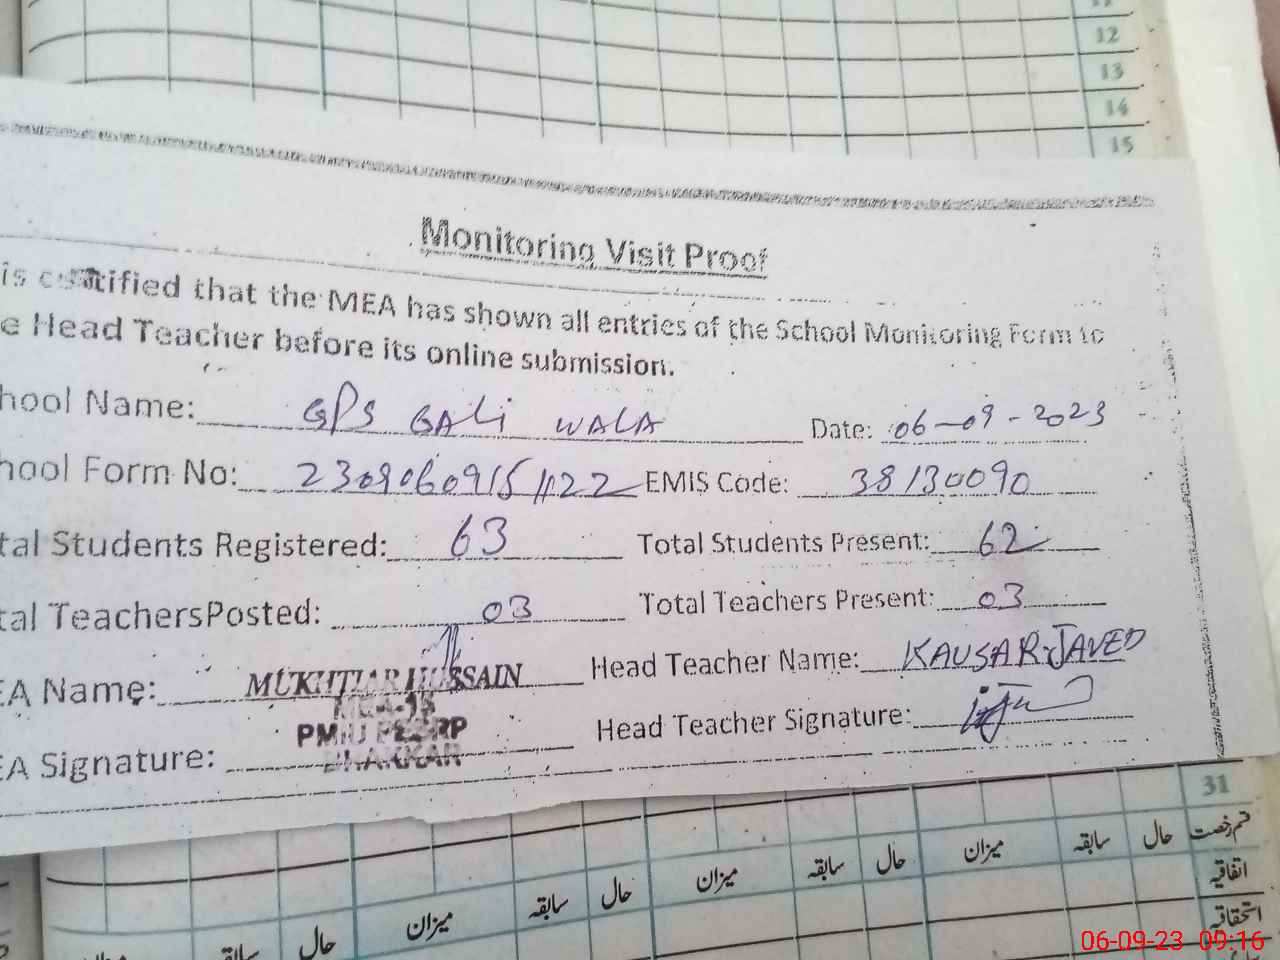 12
13
14
15
Monitoring Visit Proof
is certified that the MEA has shown all entries of the School Monitoring Form to
e Head Teacher before its online submission.
hool Name: GPS GALI WALA Date: 06-09-2023
hool Form No: 2309060915 1122 EMIS Code: 38130090
tal Students Registered: 63 Total Students Present: 62
tal TeachersPosted: 03 Total Teachers Present: 03
EA Name: MUKHTIAR HUSSAIN Head Teacher Name: KAUSAR JAVED
MEA-15
PMIU PESRP
BHAKKAR
EA Signature: Head Teacher Signature:
31
قسم رخصت حال سابقہ میزان حال سابقہ میزان حال سابقہ میزان حال سابقہ
اتفاقیہ
استحقاقیہ
06-09-23 09:16